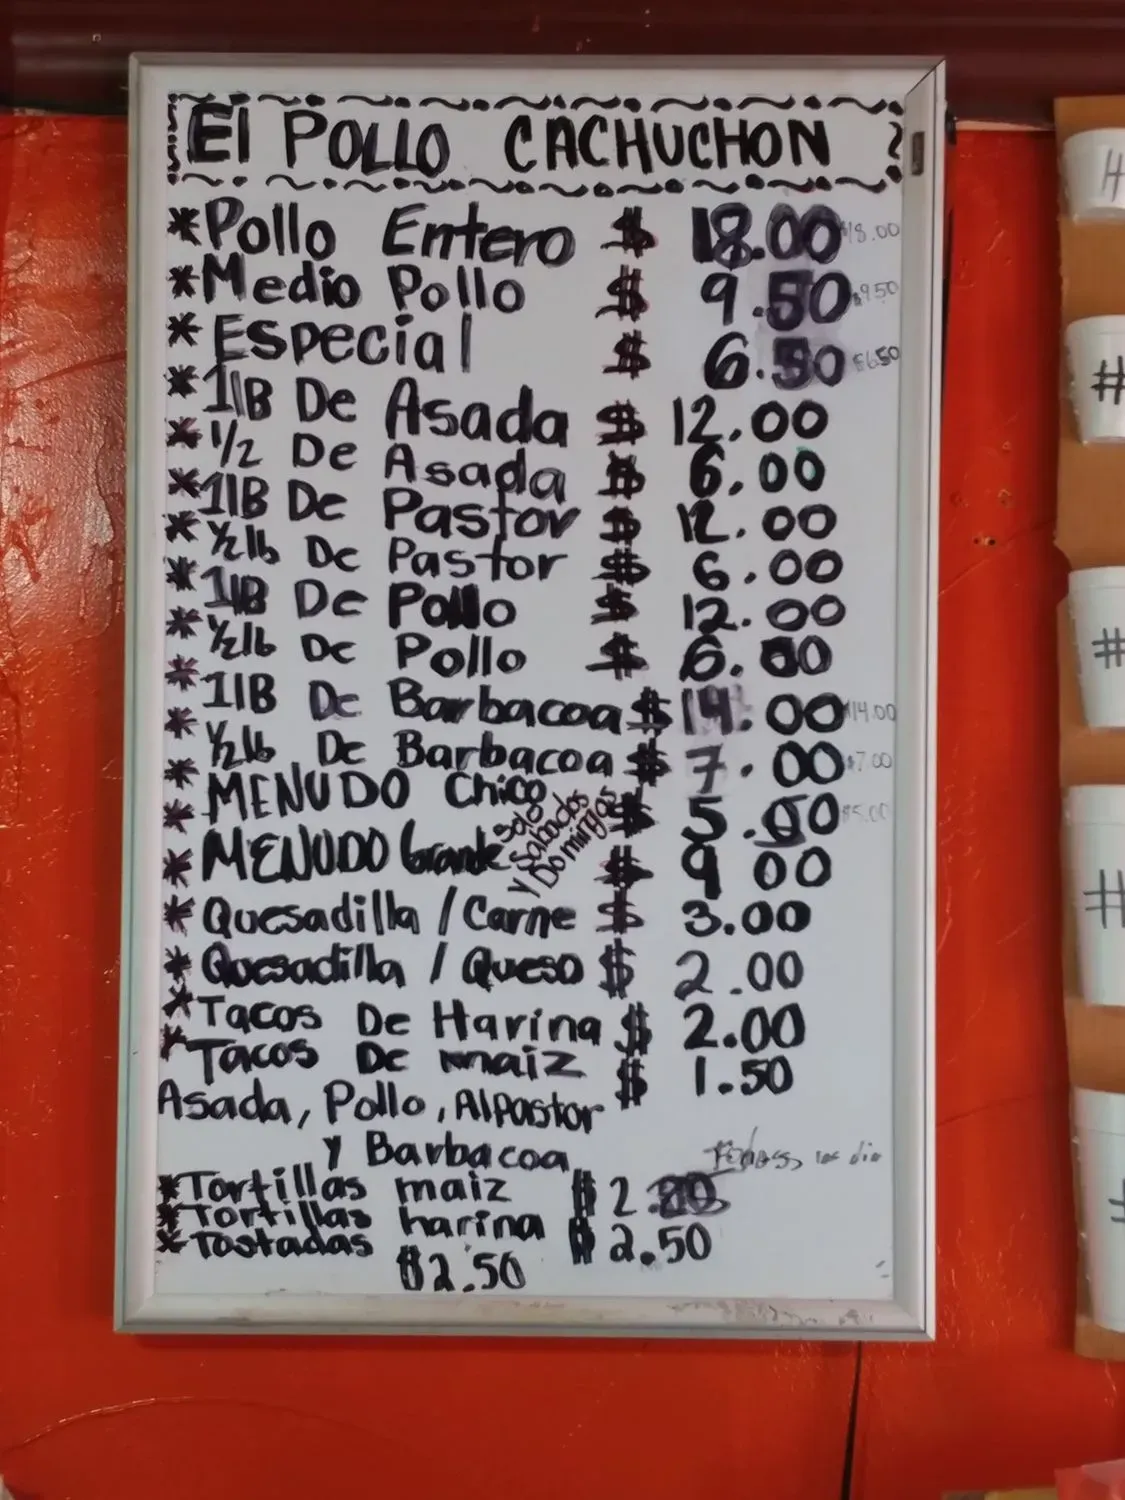 El POLLO CACHUCHON
*Pollo Entero $ 18.00 $18.00
*Medio Pollo $ 9.50 $9.50
*Especial $ 6.50 $6.50
*1lB De Asada $ 12.00
*1/2 De Asada $ 6.00
*1lB De Pastor $ 12.00
*1/2 lb De Pastor $ 6.00
*1lB De Pollo $ 12.00
*1/2 lb De Pollo $ 6.00
*1lB De Barbacoa $ 14.00 $14.00
*1/2 lb De Barbacoa $ 7.00 $7.00
*MENUDO Chico $ 5.00 $5.00
Solo Sabados
y Domingos
*MENUDO Grande $ 9 00
*Quesadilla / Carne $ 3.00
*Quesadilla / Queso $ 2.00
*Tacos De Harina $ 2.00
*Tacos De maiz $ 1.50
Asada, Pollo, AlPastor
y Barbacoa
*Tortillas maiz $ 2.
*Tortillas harina $ 2.50
*Tostadas
$2.50
#
#
#